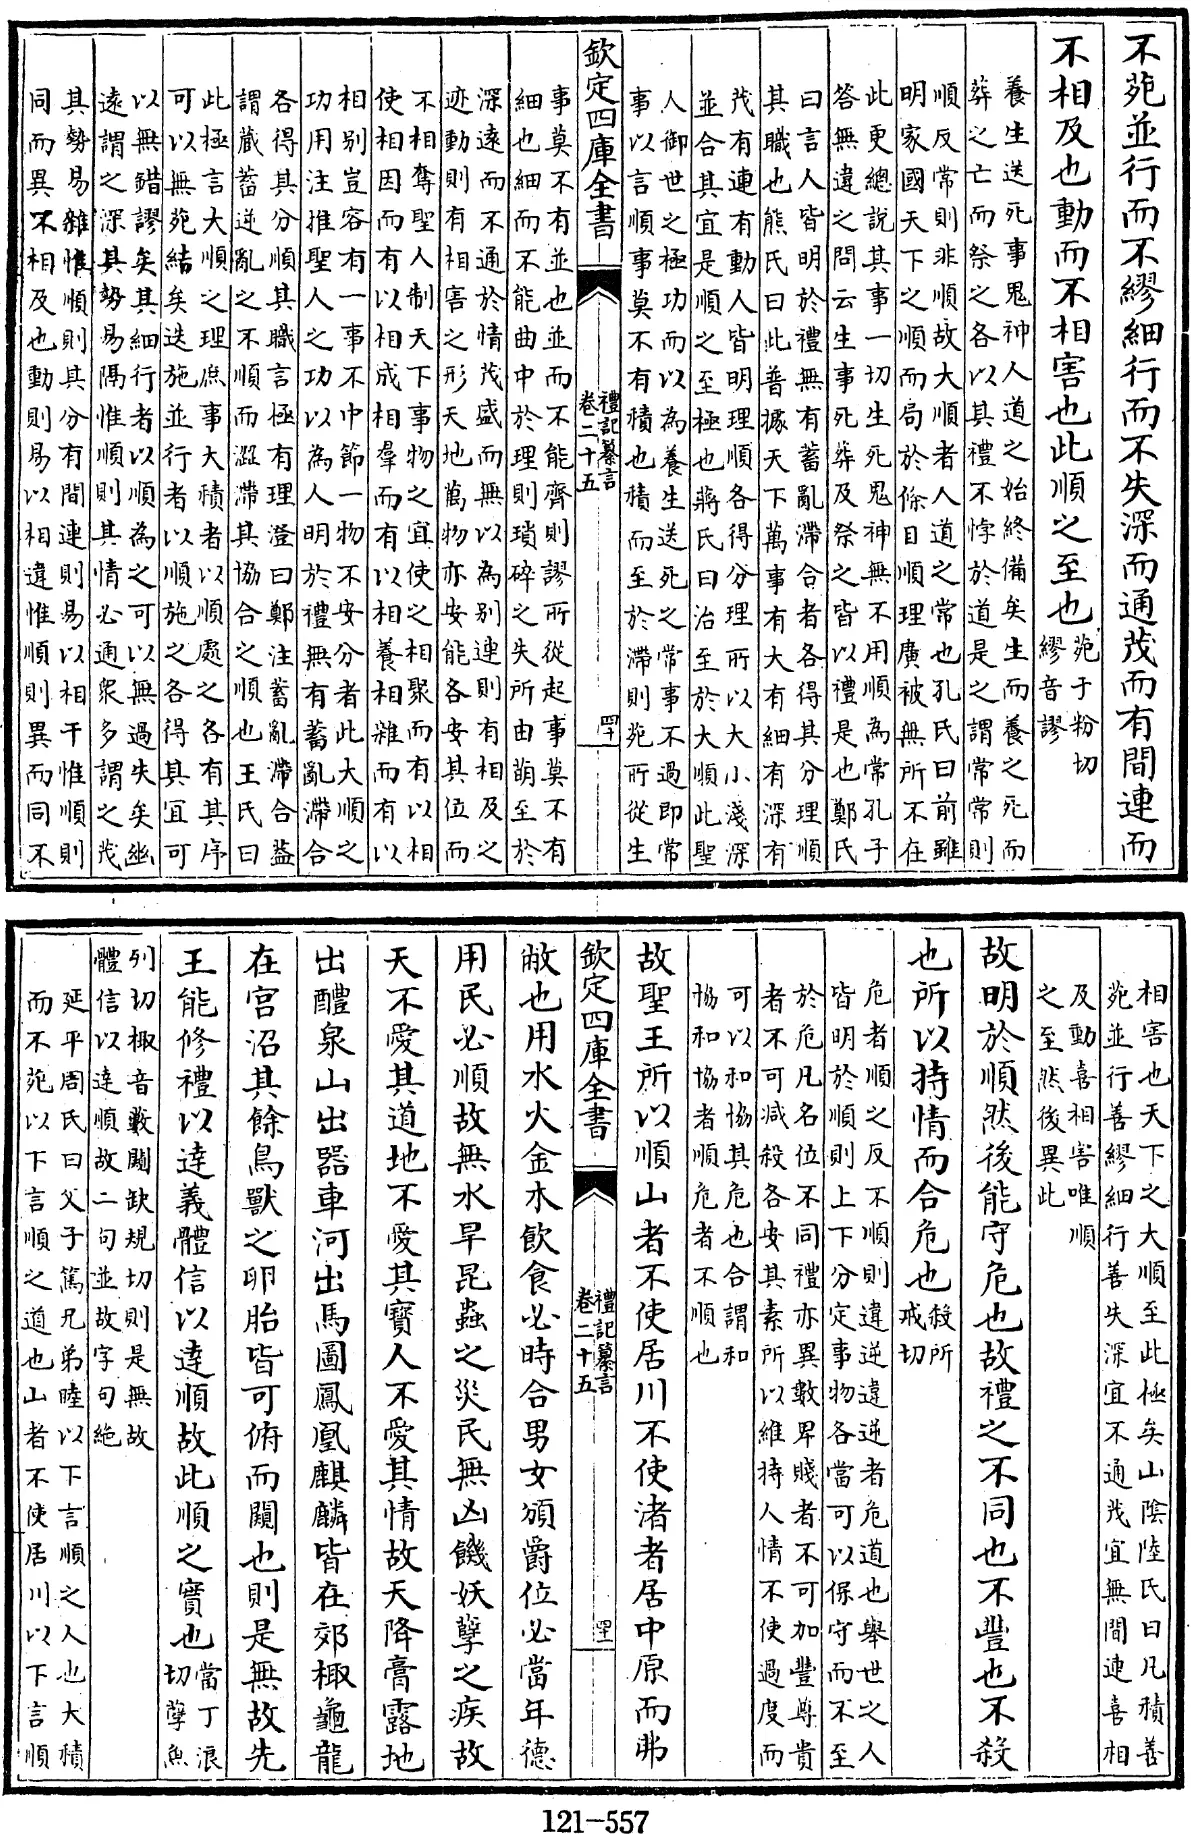 不苑並行而不繆細行而不失深而通茂而有間連而
不相及也動而不相害也此順之至也
苑于粉切
繆音謬
養生送死事鬼神人道之始終備矣生而養之死而
葬之亡而祭之各以其禮不悖於道是之謂常常則
順反常則非順故大順者人道之常也孔氏曰前雖
明家國天下之順而局於條目順理廣被無所不在
此更總說其事一切生死鬼神無不用順為常孔子
答無違之問云生事死葬及祭之皆以禮是也鄭氏
曰言人皆明於禮無有蓄亂滯合者各得其分理順
其職也熊氏曰此普據天下萬事有大有細有深有
茂有連有動人皆明理順各得分理所以大小淺深
並合其宜是順之至極也蔣氏曰治至於大順此聖
人御世之極功而以為養生送死之常事不過即常
事以言順事莫不有積也積而至於滯則苑所從生
欽定四庫全書
禮記纂言
卷二十五
四十
事莫不有並也並而不能齊則謬所從起事莫不有
細也細而不能曲中於理則瑣碎之失所由萌至於
深遠而不通於情茂盛而無以為別連則有相及之
迹動則有相害之形天地萬物亦安能各安其位而
不相奪聖人制天下事物之宜使之相聚而有以相
使相因而有以相成相羣而有以相養相雜而有以
相別豈容有一事不中節一物不安分者此大順之
功用注推聖人之功以為人明於禮無有蓄亂滯合
各得其分順其職言極有理澄曰鄭注蓄亂滯合葢
謂藏蓄逆亂之不順而澀滯其協合之順也王氏曰
此極言大順之理庶事大積者以順處之各有其序
可以無苑結矣迭施並行者以順施之各得其宜可
以無錯謬矣其細行者以順為之可以無過失矣幽
遠謂之深其勢易隔惟順則其情必通衆多謂之茂
其勢易雜惟順則其分有間連則易以相干惟順則
同而異不相及也動則易以相違惟順則異而同不
相害也天下之大順至此極矣山陰陸氏曰凡積善
苑並行善繆細行善失深宜不通茂宜無間連喜相
及動喜相害唯順
之至然後異此
故明於順然後能守危也故禮之不同也不豐也不殺
也所以持情而合危也
殺所
戒切
危者順之反不順則違逆違逆者危道也舉世之人
皆明於順則上下分定事物各當可以保守而不至
於危凡名位不同禮亦異數卑賤者不可加豐尊貴
者不可減殺各安其素所以維持人情不使過度而
可以和協其危也合謂和
協和協者順危者不順也
故聖王所以順山者不使居川不使渚者居中原而弗
欽定四庫全書
禮記纂言
卷二十五
四十一
敝也用水火金木飲食必時合男女頒爵位必當年德
用民必順故無水旱昆蟲之災民無凶饑妖孽之疾故
天不愛其道地不愛其寶人不愛其情故天降膏露地
出醴泉山出器車河出馬圖鳳凰麒麟皆在郊棷龜龍
在宮沼其餘鳥獸之卵胎皆可俯而闚也則是無故先
王能修禮以達義體信以達順故此順之實也
當丁浪
切孽魚
列切棷音藪闚缺規切則是無故
體信以達順故二句並故字句絶
延平周氏曰父子篤兄弟睦以下言順之人也大積
而不苑以下言順之道也山者不使居川以下言順
121-557